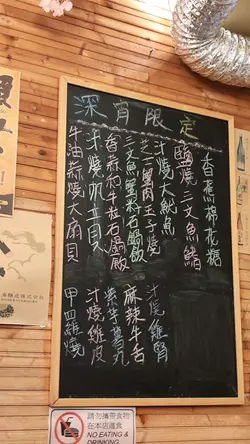 深宵限定
香蕉棉花糖
鹽燒三文魚鰭
汁燒大魷魚
芝士蟹肉玉子燒
三文魚蟹籽石鍋飯
香蒜和牛粒石鍋飯
汁燒帆立貝
牛油蒜燒大扇貝
汁燒雞腎
麻辣牛舌
紫牛蒡丸
汁燒雞皮
甲四雞燒
請勿攜帶食物
在本店進食
NO EATING &
DRINKING